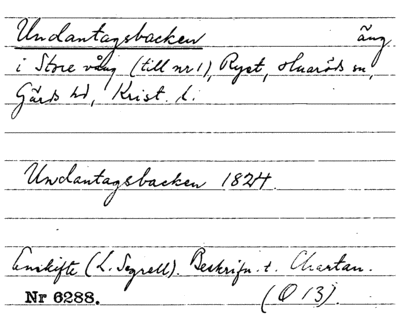 Undantagsbacken äng
i Store vång (till nr 1), Ryet, Huaröds sn,
Gärds hd, Krist. l.
Undantagsbacken 1824.
Enskifte (L. Segrell). Beskrifn. t. Chartan.
Nr 6288. (O 13).